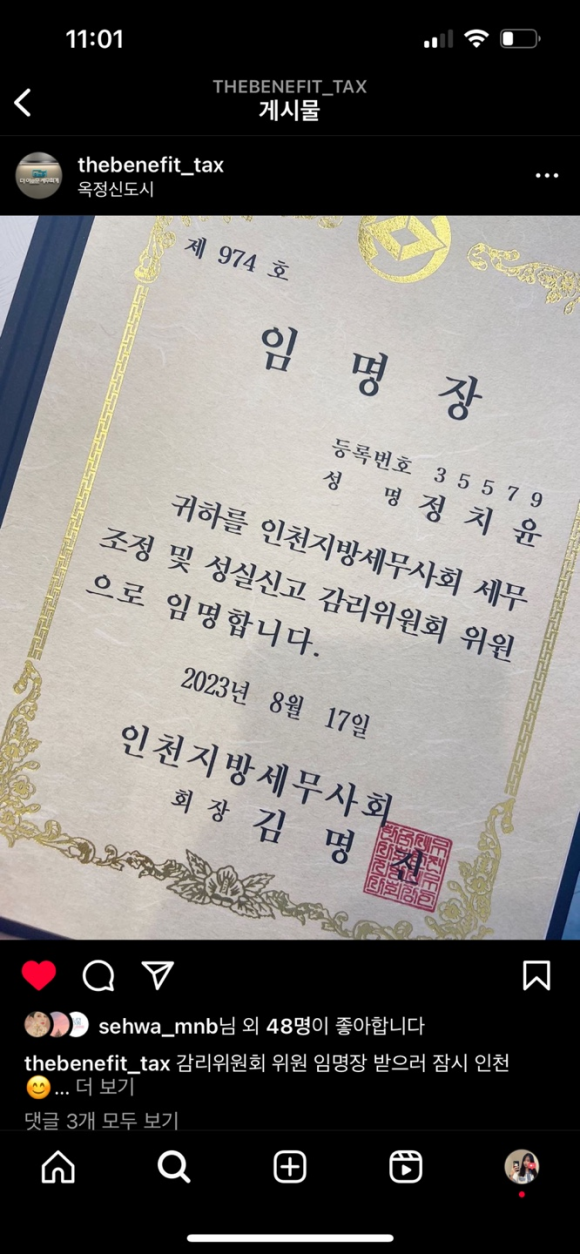 11:01
THEBENEFIT_TAX
게시물
thebenefit_tax
옥정신도시
제 974 호
임 명 장
등록번호 3 5 5 7 9
성 명 정 치 윤
귀하를 인천지방세무사회 세무
조정 및 성실신고 감리위원회 위원
으로 임명합니다.
2023년 8월 17일
인천지방세무사회
회 장 김 명 진
sehwa_mnb님 외 48명이 좋아합니다
thebenefit_tax 감리위원회 위원 임명장 받으러 잠시 인천
😊... 더 보기
댓글 3개 모두 보기